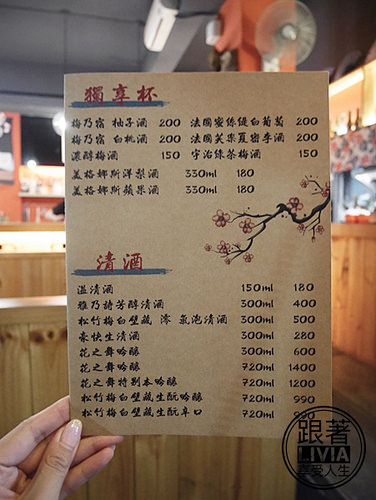 獨享杯
梅乃宿 柚子酒 200 法國蜜絲緹白葡萄 200
梅乃宿 白桃酒 200 法國芙樂夏密李酒 200
濃醇梅酒 150 宇治綠茶梅酒 150
美格娜斯洋梨酒 330ml 180
美格娜斯蘋果酒 330ml 180
清酒
溫清酒 150ml 180
雅乃詩芳醇清酒 300ml 400
松竹梅白壁藏 澪 氣泡清酒 300ml 500
豪快生清酒 300ml 280
花之舞吟釀 300ml 600
花之舞吟釀 720ml 1400
花之舞特別本吟釀 720ml 1200
松竹梅白壁藏生酛吟釀 720ml 990
松竹梅白壁藏生酛辛口 720ml 990
跟著
LIVIA
享受人生